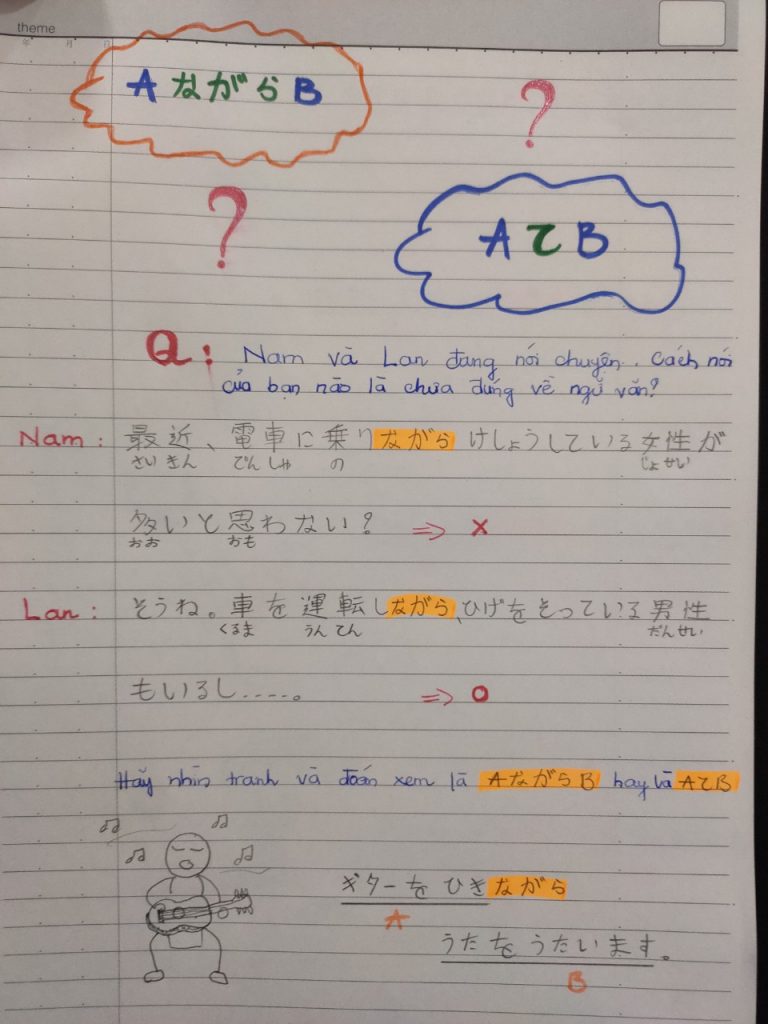 theme
年 月 日
AながらB
?
?
AてB
Q: Nam và Lan đang nói chuyện. Cách nói
của bạn nào là chưa đúng về ngữ văn?
Nam: 最近、電車に乗りながらけしょうしている女性が
さい きん でん しゃ の じょ せい
多いと思わない? ⇒ ×
おお おも
Lan: そうね。車を運転しながら、ひげをそっている男性
くるま うん てん だん せい
もいるし.....。 ⇒ o
Hãy nhìn tranh và đoán xem là AながらB hay là AてB
ギターをひきながら
A
うたをうたいます。
B